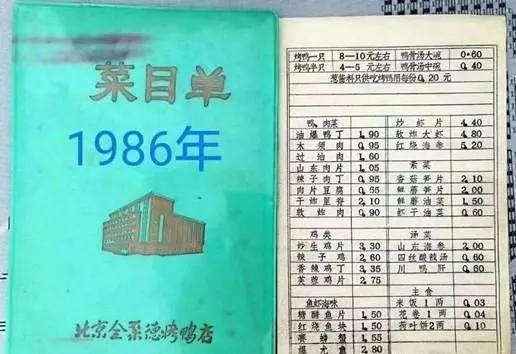 菜目单
1986年
北京全聚德烤鸭店
烤鸭一只 8—10元左右 鸭骨汤大碗 0.60
烤鸭半只 4—5元左右 鸭骨汤中碗 0.40
葱酱料只供吃烤鸭用每份0.20元
鸭、肉菜
油爆鸭丁 1.90
木须肉 0.95
过油肉 1.60
山东肉片 1.05
辣子肉丁 0.95
肉片豆腐 0.55
干炸里脊 2.10
软炸肉 0.95
鸡类
炒生鸡片 3.30
辣子鸡 2.60
香辣鸡丁 3.35
芙蓉鸡片 2.75
鱼虾海味
糖醋鱼片 1.50
红烧鱼块 1.50
赛螃蟹 1.55
爆尤鱼 2.80
炒虾片 4.40
软炸大虾 4.80
红烧海参 5.20
素菜
香菇笋片 2.10
鲜蘑笋片 2.00
鲜蘑油菜 1.50
虾干油菜 0.60
汤菜
山东海参 2.00
四丝酸辣汤 0.60
川鸭肝 0.60
主食
米饭1两 0.03
花卷1两 0.04
荷叶饼2两 0.10